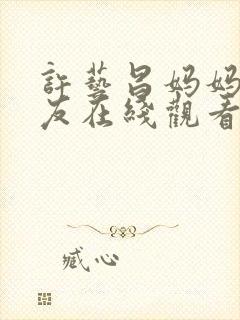 許藝昌妈妈
友在綫觀看
臧心